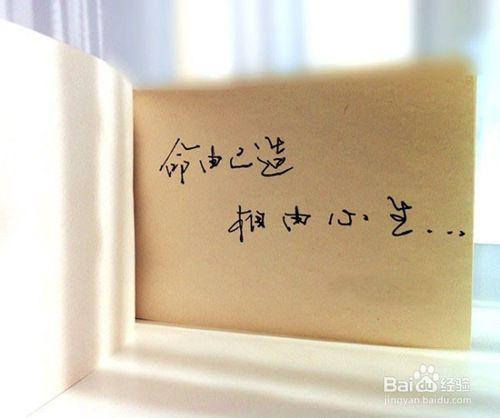 命由己造
相由心生...
Baidu经验
jingyan.baidu.com